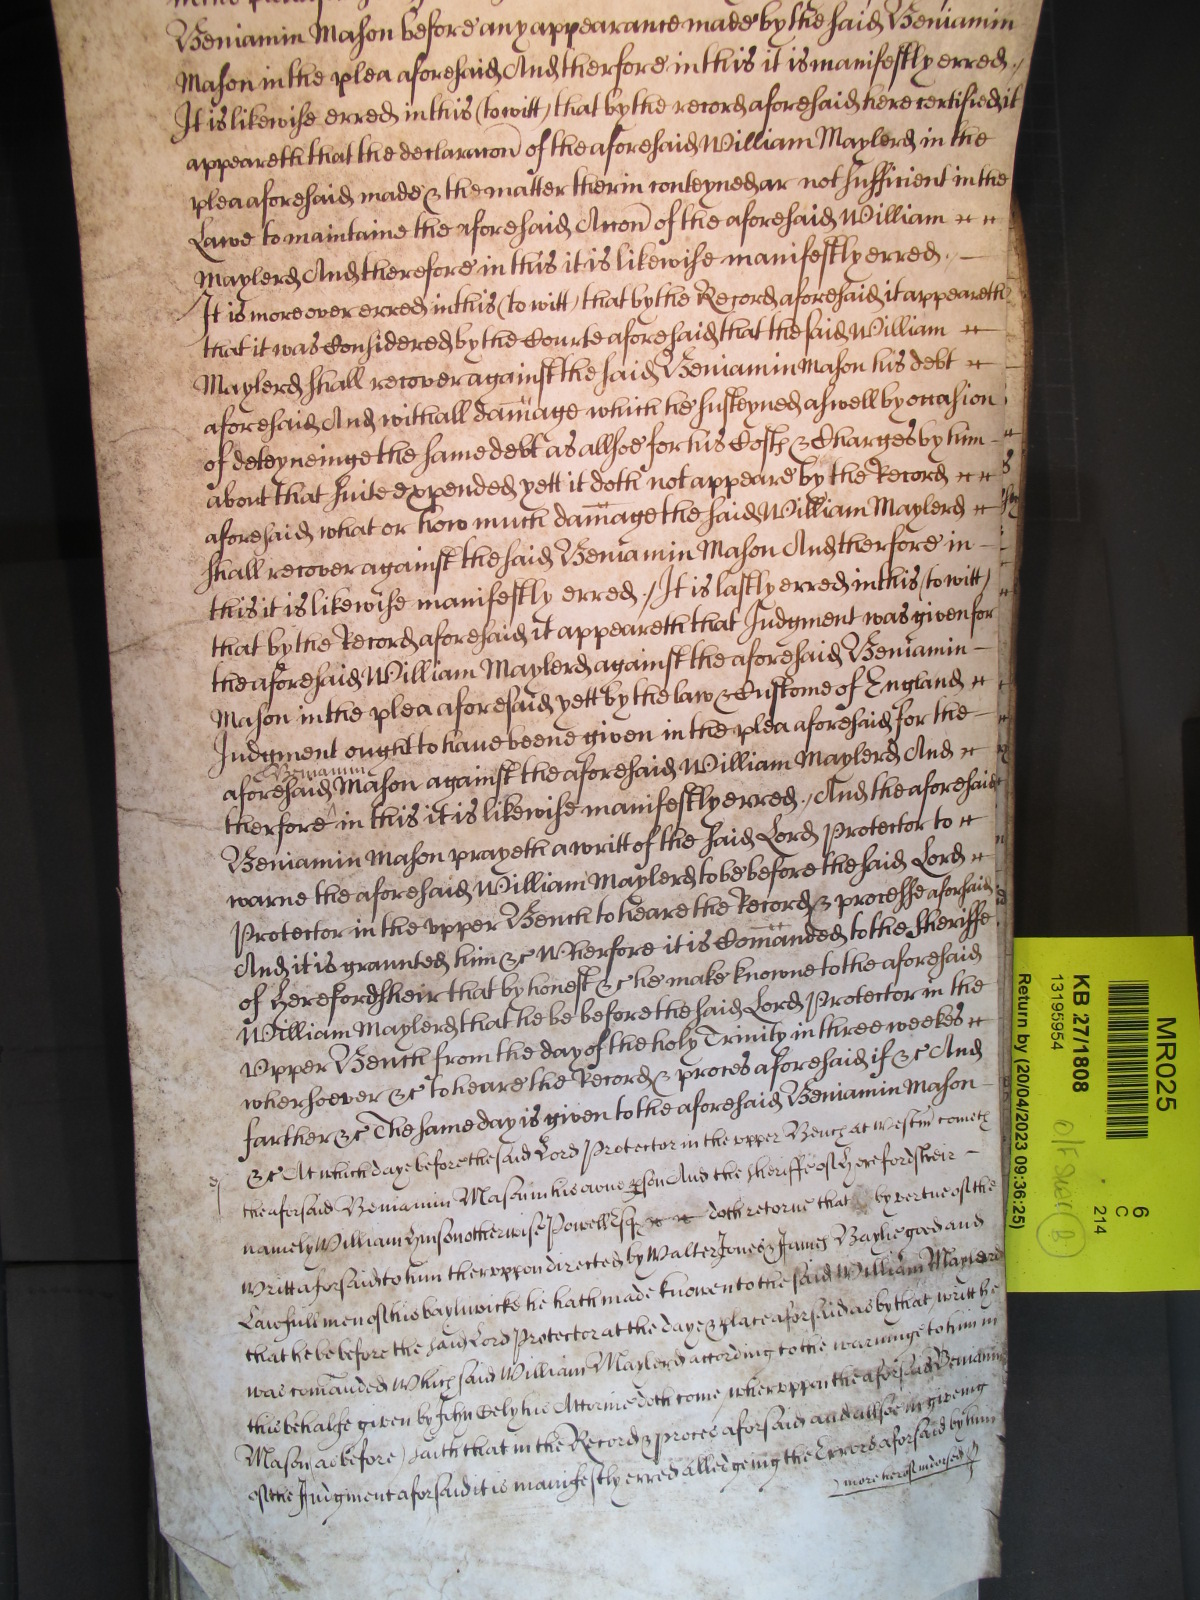 Beniamin Mason before any appearance made by the said Beniamin
Mason in the plea aforesaid And therfore in this it is manifestly erred ./
It is likewise erred in this (to witt) that by the record aforesaid here certified it
appeareth that the declaracon of the aforesaid William Maylerd in the
plea aforesaid made & the matter therin conteyned ar not sufficient in the
Lawe to maintaine the aforesaid Accon of the aforesaid William
Maylerd And therefore in this it is likewise manifestly erred .
It is moreover erred in this (to witt) that by the Record aforesaid it appeareth
that it was Considered by the Courte aforesaid that the said William
Maylerd shall recover against the said Beniamin Mason his debt
aforesaid And withall damage which he susteyned aswell by occasion
of deteyneinge the same debt as allsoe for his Costs & Charges by him
about that suite expended yett it doth not appeare by the Record
aforesaid what or how much damage the said William Maylerd
shall recover against the said Beniamin Mason And therfore in
this it is likewise manifestly erred ./ It is lastly erred in this (to witt)
that by the Record aforesaid it appeareth that Judgment was given for
the aforesaid William Maylerd against the aforesaid Beniamin
Mason in the plea aforesaid yett by the law & Custome of England
Judgment ought to have beene given in the plea aforesaid for the
Beniamin
aforesaid Mason against the aforesaid William Maylerd And
therfore in this it is likewise manifestly erred ./ And the aforesaid
Beniamin Mason prayeth a writt of the said Lord Protector to
warne the aforesaid William Maylerd to be before the said Lord
Protector in the upper Bench to heare the Record & processe aforsaid
And it is graunted him &c Wherfore it is Comanded to the Sheriffe
of Herefordsheir that by honest &c he make knowne to the aforesaid
William Maylerd that he be before the said Lord Protector in the
Upper Bench from the day of the holy Trinity in three weekes
whersoever &c to heare the Record & proces aforesaid if &c And
farther &c The same day is given to the aforesaid Beniamin Mason
&c At which daye before the said Lord Protector in the upper Bench at Westm cometh
the aforsaid Beniamin Mason in his owne pson And the Sheriffe of Herefordsheir
namely William otherwise Powell Esq doth retorne that by vertue of the
Writt aforsaid to him theruppon directed by Walter Jones & James Baylie good and
Lawfull men of his baylywicke he hath made knowen to the said William Maylerd
that he be before the said Lord Protector at the daye & place aforsaid as by that writt he
was comanded Which said William Maylerd according to the warninge to him in
this behalfe given by John Sely his Attornie doth come wheruppon the aforsaid Beniamin
Mason (as before) saith that in the Record & proces aforsaid and allsoe in giveing
of the Judgment aforsaid it is manifestly erred alledgeing the Errors aforsaid by him
MR025
6
C
214
KB 27/1808
13195954
Return by (20/04/2023 09:36:25)